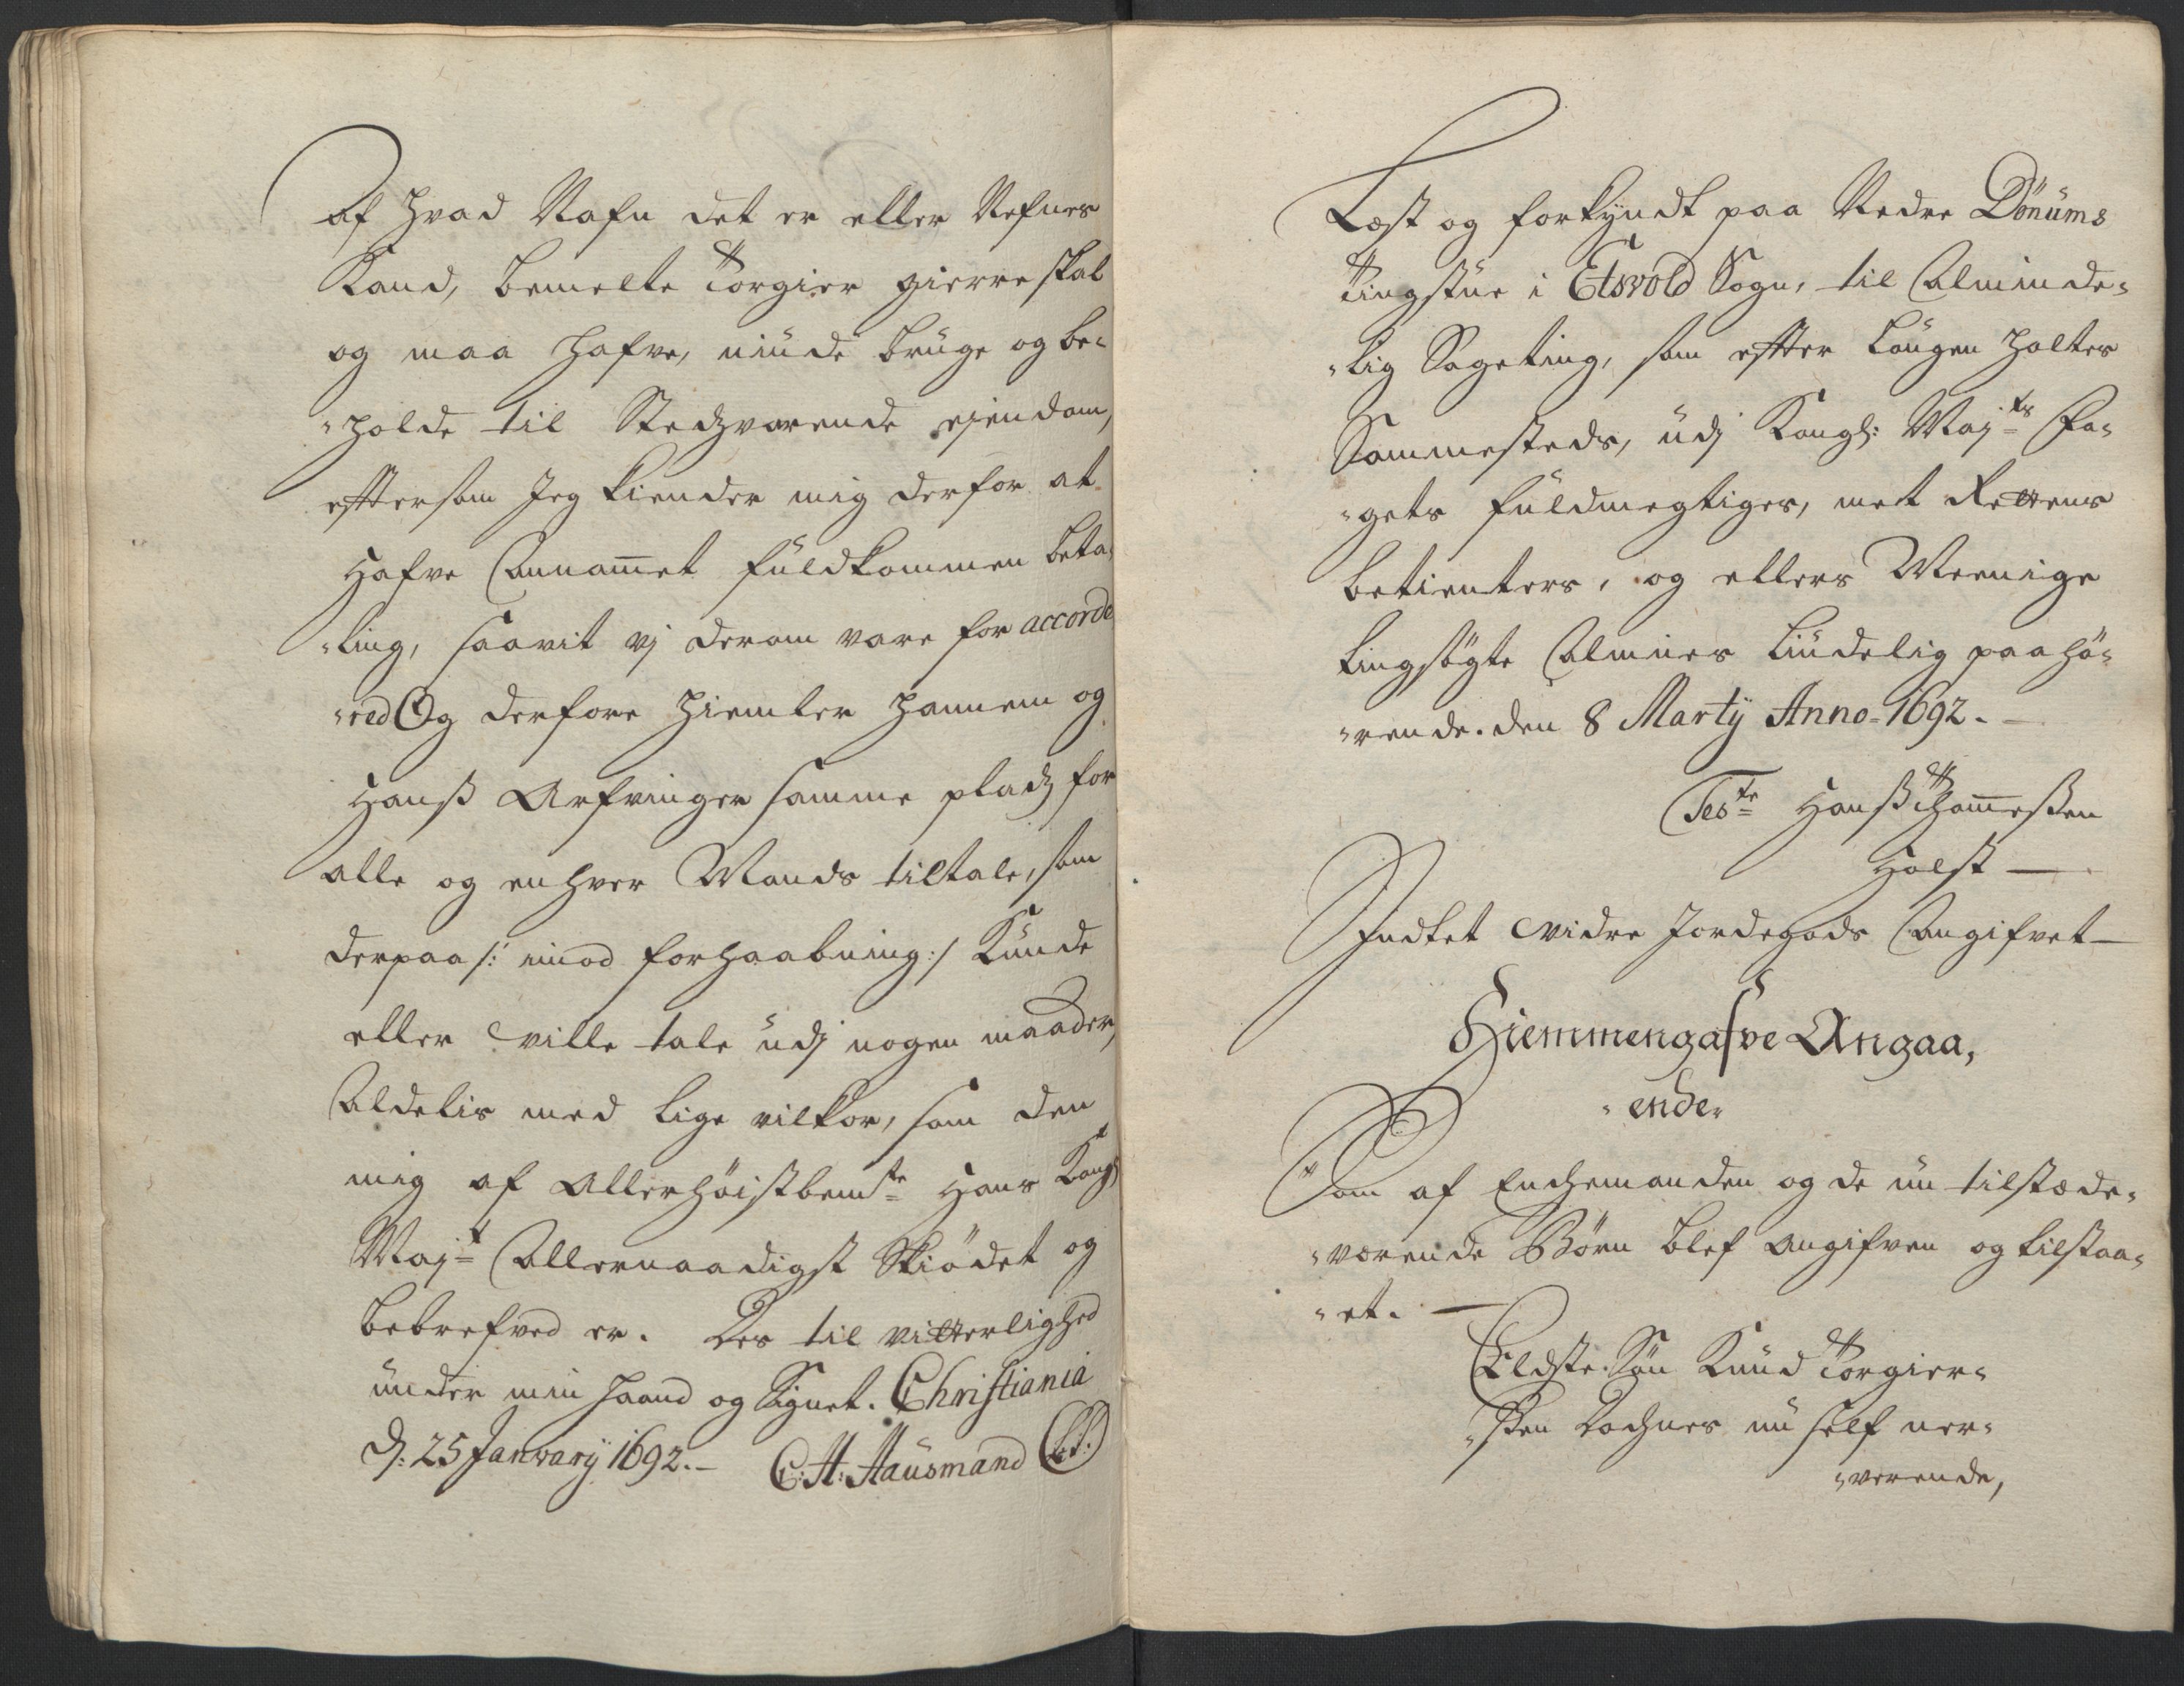 af hvad Nafn det er eller Nefnes
Kand, bemelte Torgier gierre skal
og maa hafve, niude bruge og be-
"holde til Stedzvarende ejendom,
efftersom Jeg kiender mig derfor at
hafve Annammet fuldkommen beta,
"ling, saavit vj derom vare for accorde
"red Og derfore hiemler hannem og
Hanß Arfvinger samme pladz for
alle og enhver Mands tiltale, som
derpaa /: imod forhaabning :/ Kunde
eller ville tale udj nogen maader,
Aldelis med lige vilkor, som den
mig af Allerhöistbemte Hans Kongl
Majt Allernaadigst Skiödet og
bebrefved er. Des til vitterlighed
under min haand og Signet. Christiania
d: 25 January 1692.- C: H: Hausmand (LS:)
Læst og forkyndt paa Nedre Dönums
Tingstue i Etsvold Sogn, til Alminde-
"lig Sageting, som effter Laugen holtes
Sammesteds, udj Kongl: Majts Fo-
"gets fuldmegtiges, met Rettens
betienters, og ellers Meenige
tingsögte Almues liudelig paahö-
"rende. den 8 Martij Anno-1692.-
Teste Hanß Thommeßen
Holst —
Indtet vidre Jordegods Angifvet—
Hiemmengafve Angaa,
"ende"
Som af Enchemanden og de nu tilstæde-
"værende Börn blef angifven og tilstaa-
"et. —
Eldste Sön Knud Torgier-
"sen Dochnes nu self ner-
"verende,